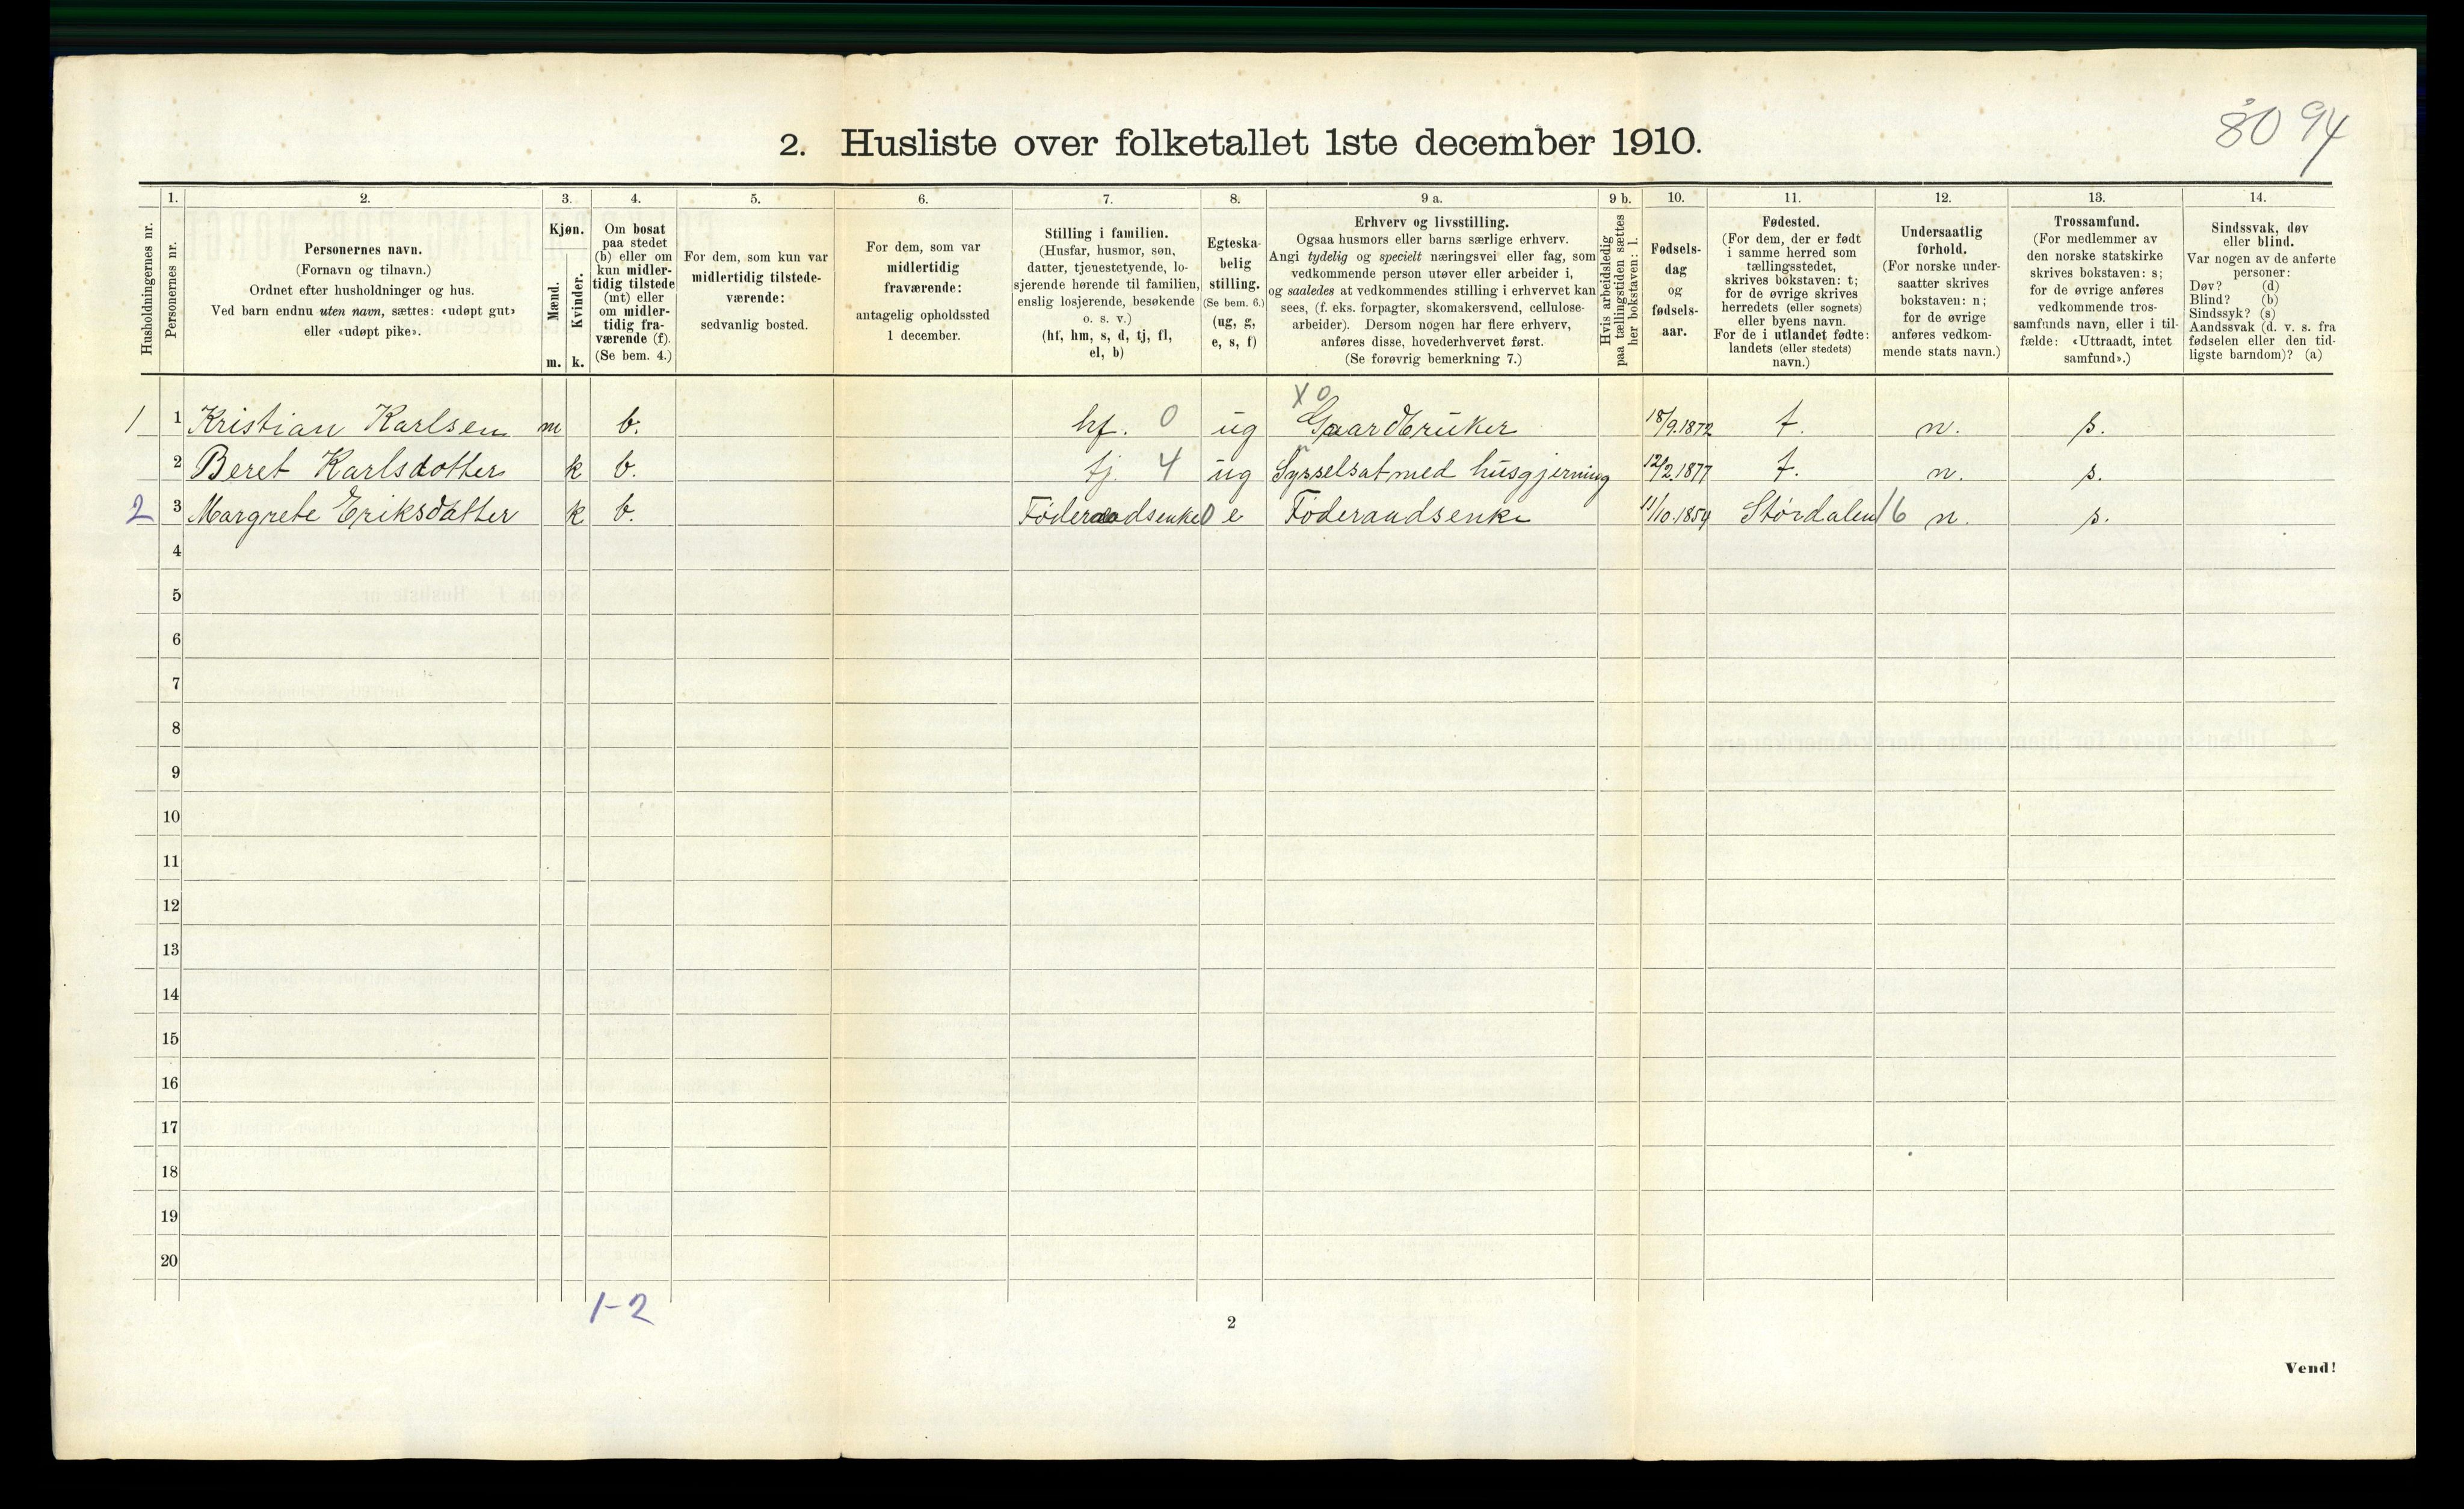 80 94
2. Husliste over folketallet 1ste december 1910.
1. 2. 3. 4. 5. 6. 7. 8. 9 a. 9 b. 10. 11. 12. 13. 14.
Husholdningernes nr.
Personernes nr.
Personernes navn.
(Fornavn og tilnavn.)
Ordnet efter husholdninger og hus.
Ved barn endnu uten navn, sættes: «udøpt gut»
eller «udøpt pike».
Kjøn.
Mænd.
Kvinder.
m. k.
Om bosat
paa stedet
(b) eller om
kun midler-
tidig tilstede
(mt) eller
om midler-
tidig fra-
værende (f).
(Se bem. 4.)
For dem, som kun var
midlertidig tilstede-
værende:
sedvanlig bosted.
For dem, som var
midlertidig
fraværende:
antagelig opholdssted
1 december.
Stilling i familien.
(Husfar, husmor, søn,
datter, tjenestetyende, lo-
sjerende hørende til familien,
enslig losjerende, besøkende
o. s. v.)
(hf, hm, s, d, tj, fl,
el, b)
Egteska-
belig
stilling.
(Se bem. 6.)
(ug, g,
e, s, f)
Erhverv og livsstilling.
Ogsaa husmors eller barns særlige erhverv.
Angi tydelig og specielt næringsvei eller fag, som
vedkommende person utøver eller arbeider i,
og saaledes at vedkommendes stilling i erhvervet kan
sees, (f. eks. forpagter, skomakersvend, cellulose-
arbeider). Dersom nogen har flere erhverv,
anføres disse, hovederhvervet først.
(Se forøvrig bemerkning 7.)
Hvis arbeidsledig
paa tællingstiden sættes
her bokstaven: l.
Fødsels-
dag
og
fødsels-
aar.
Fødested.
(For dem, der er født
i samme herred som
tællingsstedet,
skrives bokstaven: t;
for de øvrige skrives
herredets (eller sognets)
eller byens navn.
For de i utlandet fødte:
landets (eller stedets)
navn.)
Undersaatlig
forhold.
(For norske under-
saatter skrives
bokstaven: n;
for de øvrige
anføres vedkom-
mende stats navn.)
Trossamfund.
(For medlemmer av
den norske statskirke
skrives bokstaven: s;
for de øvrige anføres
vedkommende tros-
samfunds navn, eller i til-
fælde: «Uttraadt, intet
samfund».)
Sindssvak, døv
eller blind.
Var nogen av de anførte
personer:
Døv? (d)
Blind? (b)
Sindssyk? (s)
Aandssvak (d. v. s. fra
fødselen eller den tid-
ligste barndom)? (a)
X 0
1 1 Kristian Karlsen m b. hf. 0 ug Gaardbruker 18/9.1872 t. n. s.
2 Beret Karlsdotter k b. tj. 4 ug Sysselsat med husgjerning 12/2.1877 t. n. s.
2 3 Margrete Eriksdatter k b. Føderaadsenke 0 e Føderaadsenke 11/10.1854 Størdalen 16 n. s.
4
5
6
7
8
9
10
11
12
13
14
15
16
17
18
19
20
1-2
2
Vend!